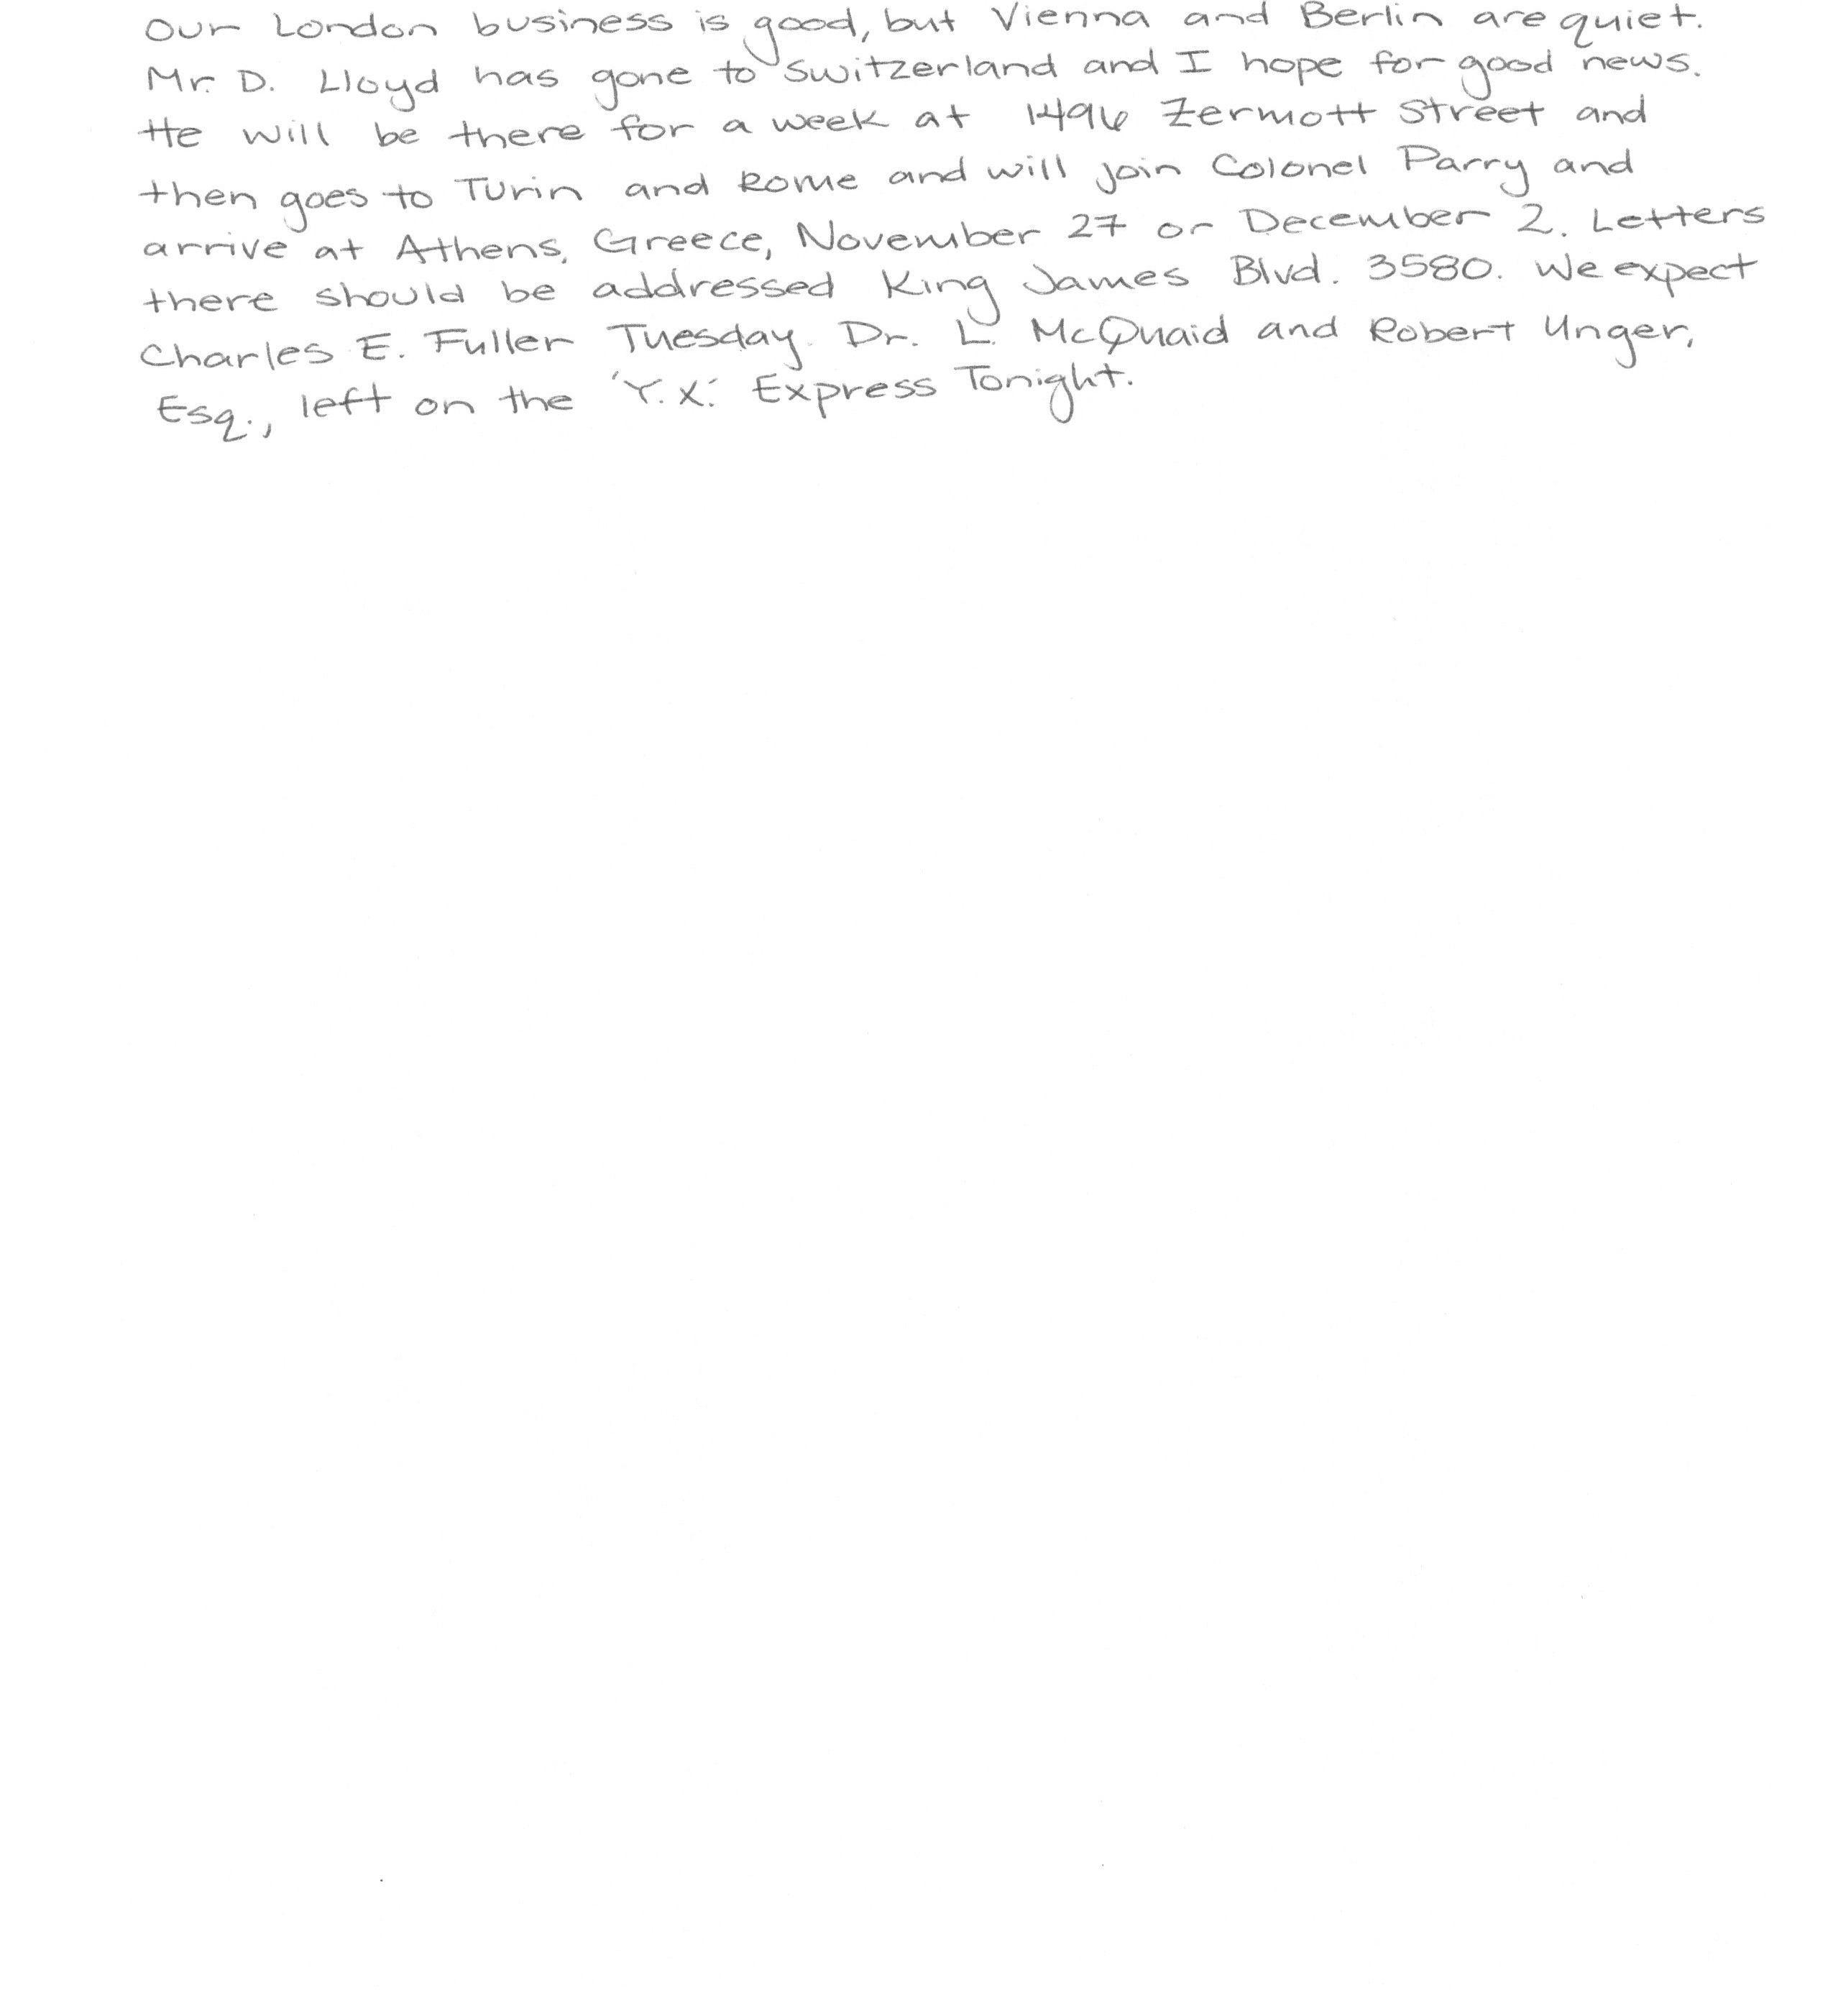 Our London business is good, but Vienna and Berlin are quiet.
Mr. D. Lloyd has gone to Switzerland and I hope for good news.
He will be there for a week at 1496 Zermott Street and
then goes to Turin and Rome and will join Colonel Parry and
arrive at Athens, Greece, November 27 or December 2. Letters
there should be addressed King James Blvd. 3580. We expect
Charles E. Fuller Tuesday. Dr. L. McQuaid and Robert Unger,
Esq., left on the 'Y.X.' Express Tonight.